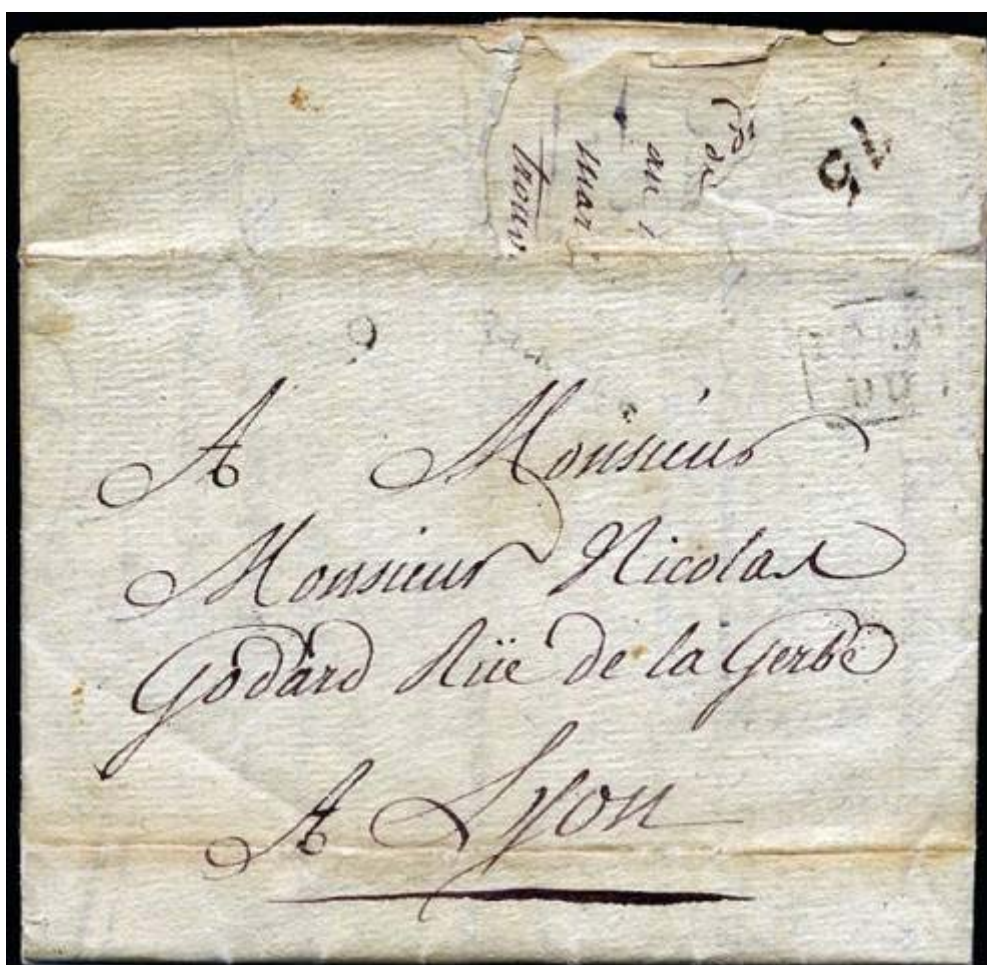 15
A Monsieur
Monsieur Nicolas
Godard Rüe de la Gerbe
A Lyon